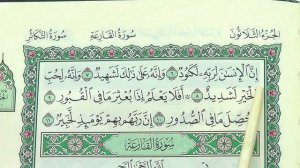 سورة التكاثر سورة القارعة الجزء الثلاثون
إن الإنسن لربه لكنود ٦ وإنه على ذلك لشهيد ٧ وإنه لحب
الخير لشديد ٨ ۞ أفلا يعلم إذا بعثر ما في القبور ٩
وحصل ما في الصدور ١٠ إن ربهم بهم يومئذ لخبير ١١
سورة القارعة